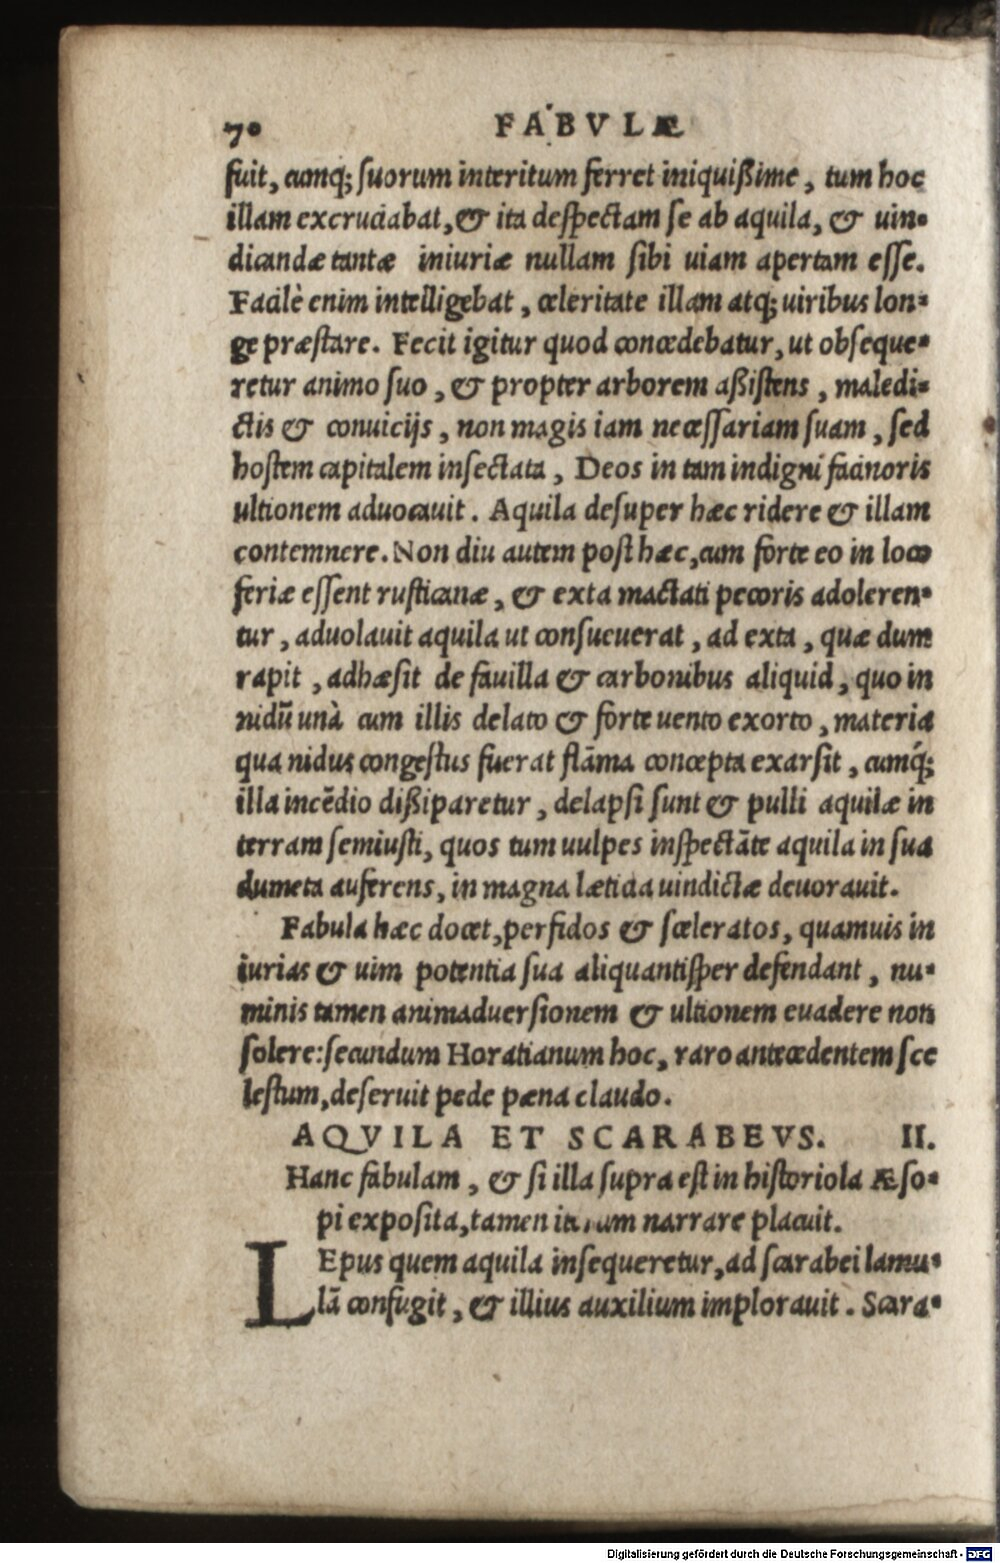 70 FABVLÆ
fuit, cumq; suorum interitum ferret iniquißime, tum hoc
illam excruciabat, & ita despectam se ab aquila, & uin-
dicandæ tantæ iniuriæ nullam sibi uiam apertam esse.
Facilè enim intelligebat, celeritate illam atq; uiribus lon-
ge præstare. Fecit igitur quod concedebatur, ut obseque-
retur animo suo, & propter arborem aßistens, maledi-
ctis & conuicijs, non magis iam necessariam suam, sed
hostem capitalem insectata, Deos in tam indigni facinoris
ultionem aduocauit. Aquila desuper hæc ridere & illam
contemnere. Non diu autem post hæc, cum forte eo in loco
feriæ essent rusticanæ, & exta mactati pecoris adoleren-
tur, aduolauit aquila ut consueuerat, ad exta, quæ dum
rapit, adhæsit de fauilla & carbonibus aliquid, quo in
nidũ unà cum illis delato & forte uento exorto, materia
qua nidus congestus fuerat flãma concepta exarsit, cumq́;
illa incẽdio dißiparetur, delapsi sunt & pulli aquilæ in
terram semiusti, quos tum uulpes inspectãte aquila in sua
dumeta auferens, in magna lætitia uindictæ deuorauit.
Fabula hæc docet, perfidos & sceleratos, quamuis in
iurias & uim potentia sua aliquantisper defendant, nu-
minis tamen animaduersionem & ultionem euadere non
solere: secundum Horatianum hoc, raro antecedentem sce
lestum, deseruit pede pæna claudo.
AQVILA ET SCARABEVS. II.
Hanc fabulam, & si illa supra est in historiola Æso-
pi exposita, tamen iterum narrare placuit.
LEpus quem aquila insequeretur, ad scarabei lamu-
lã confugit, & illius auxilium implorauit. Scara-
Digitalisierung gefördert durch die Deutsche Forschungsgemeinschaft - DFG